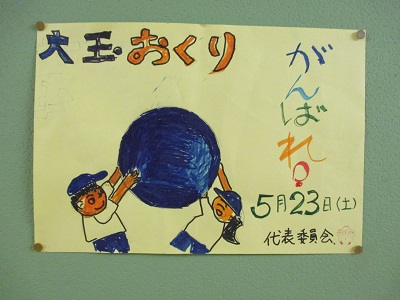 大玉・おくり
がんばれ!
5月23日(土)
代表委員会